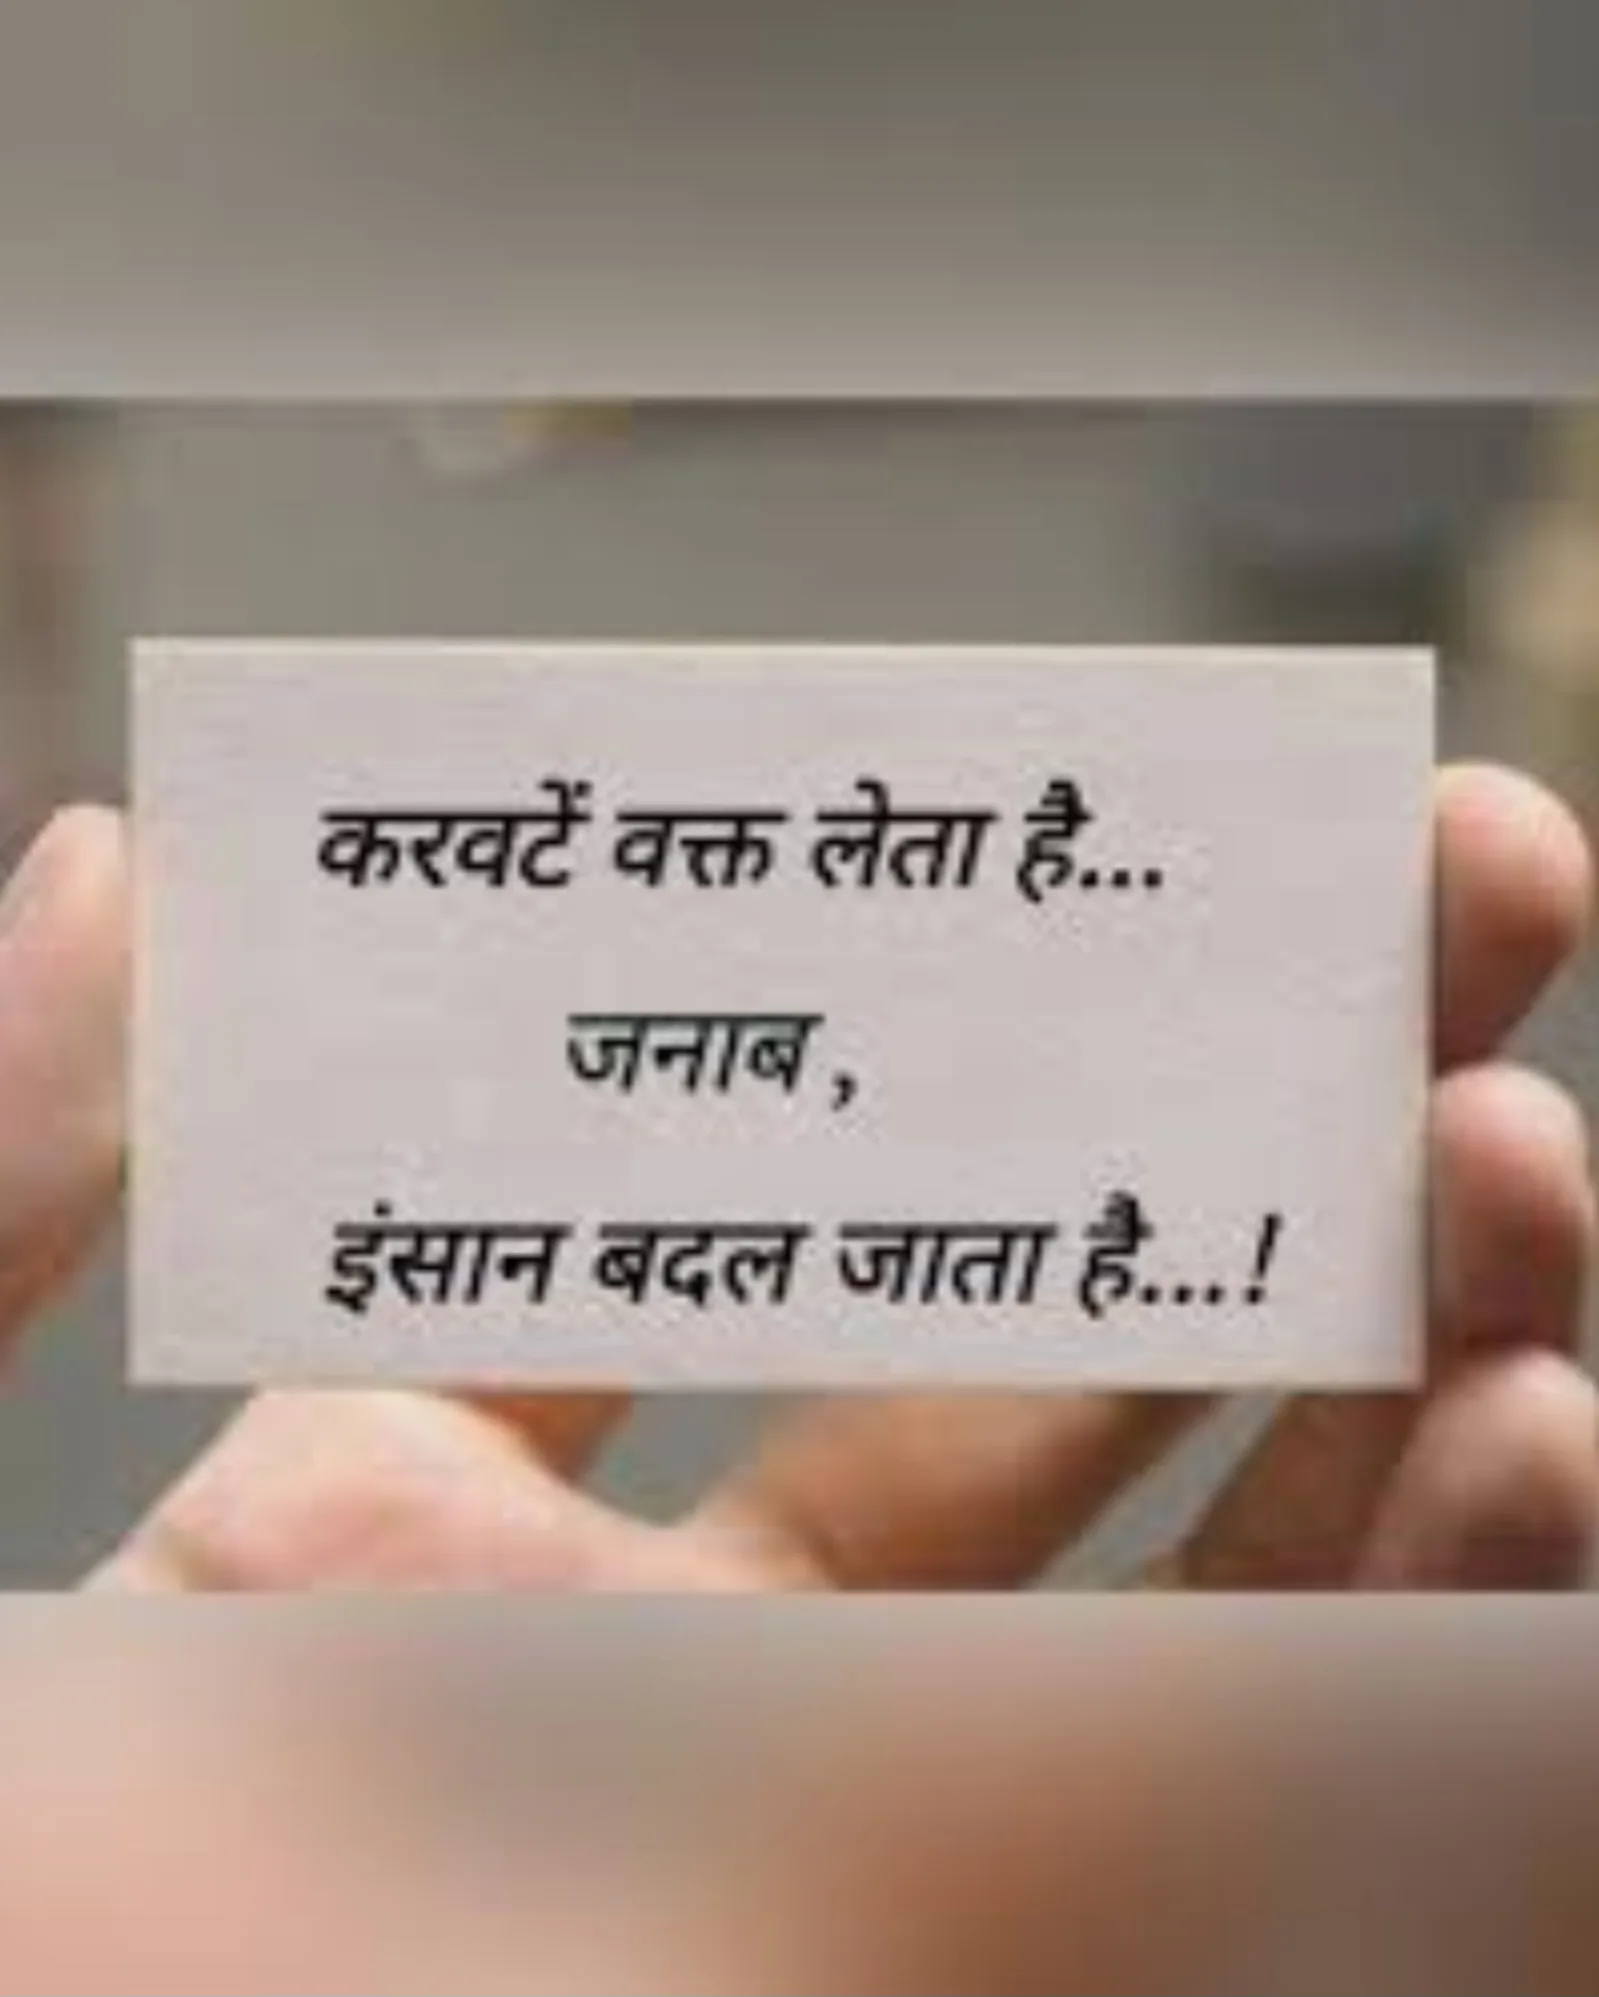 करवटें वक्त लेता है...
जनाब ,
इंसान बदल जाता है...!